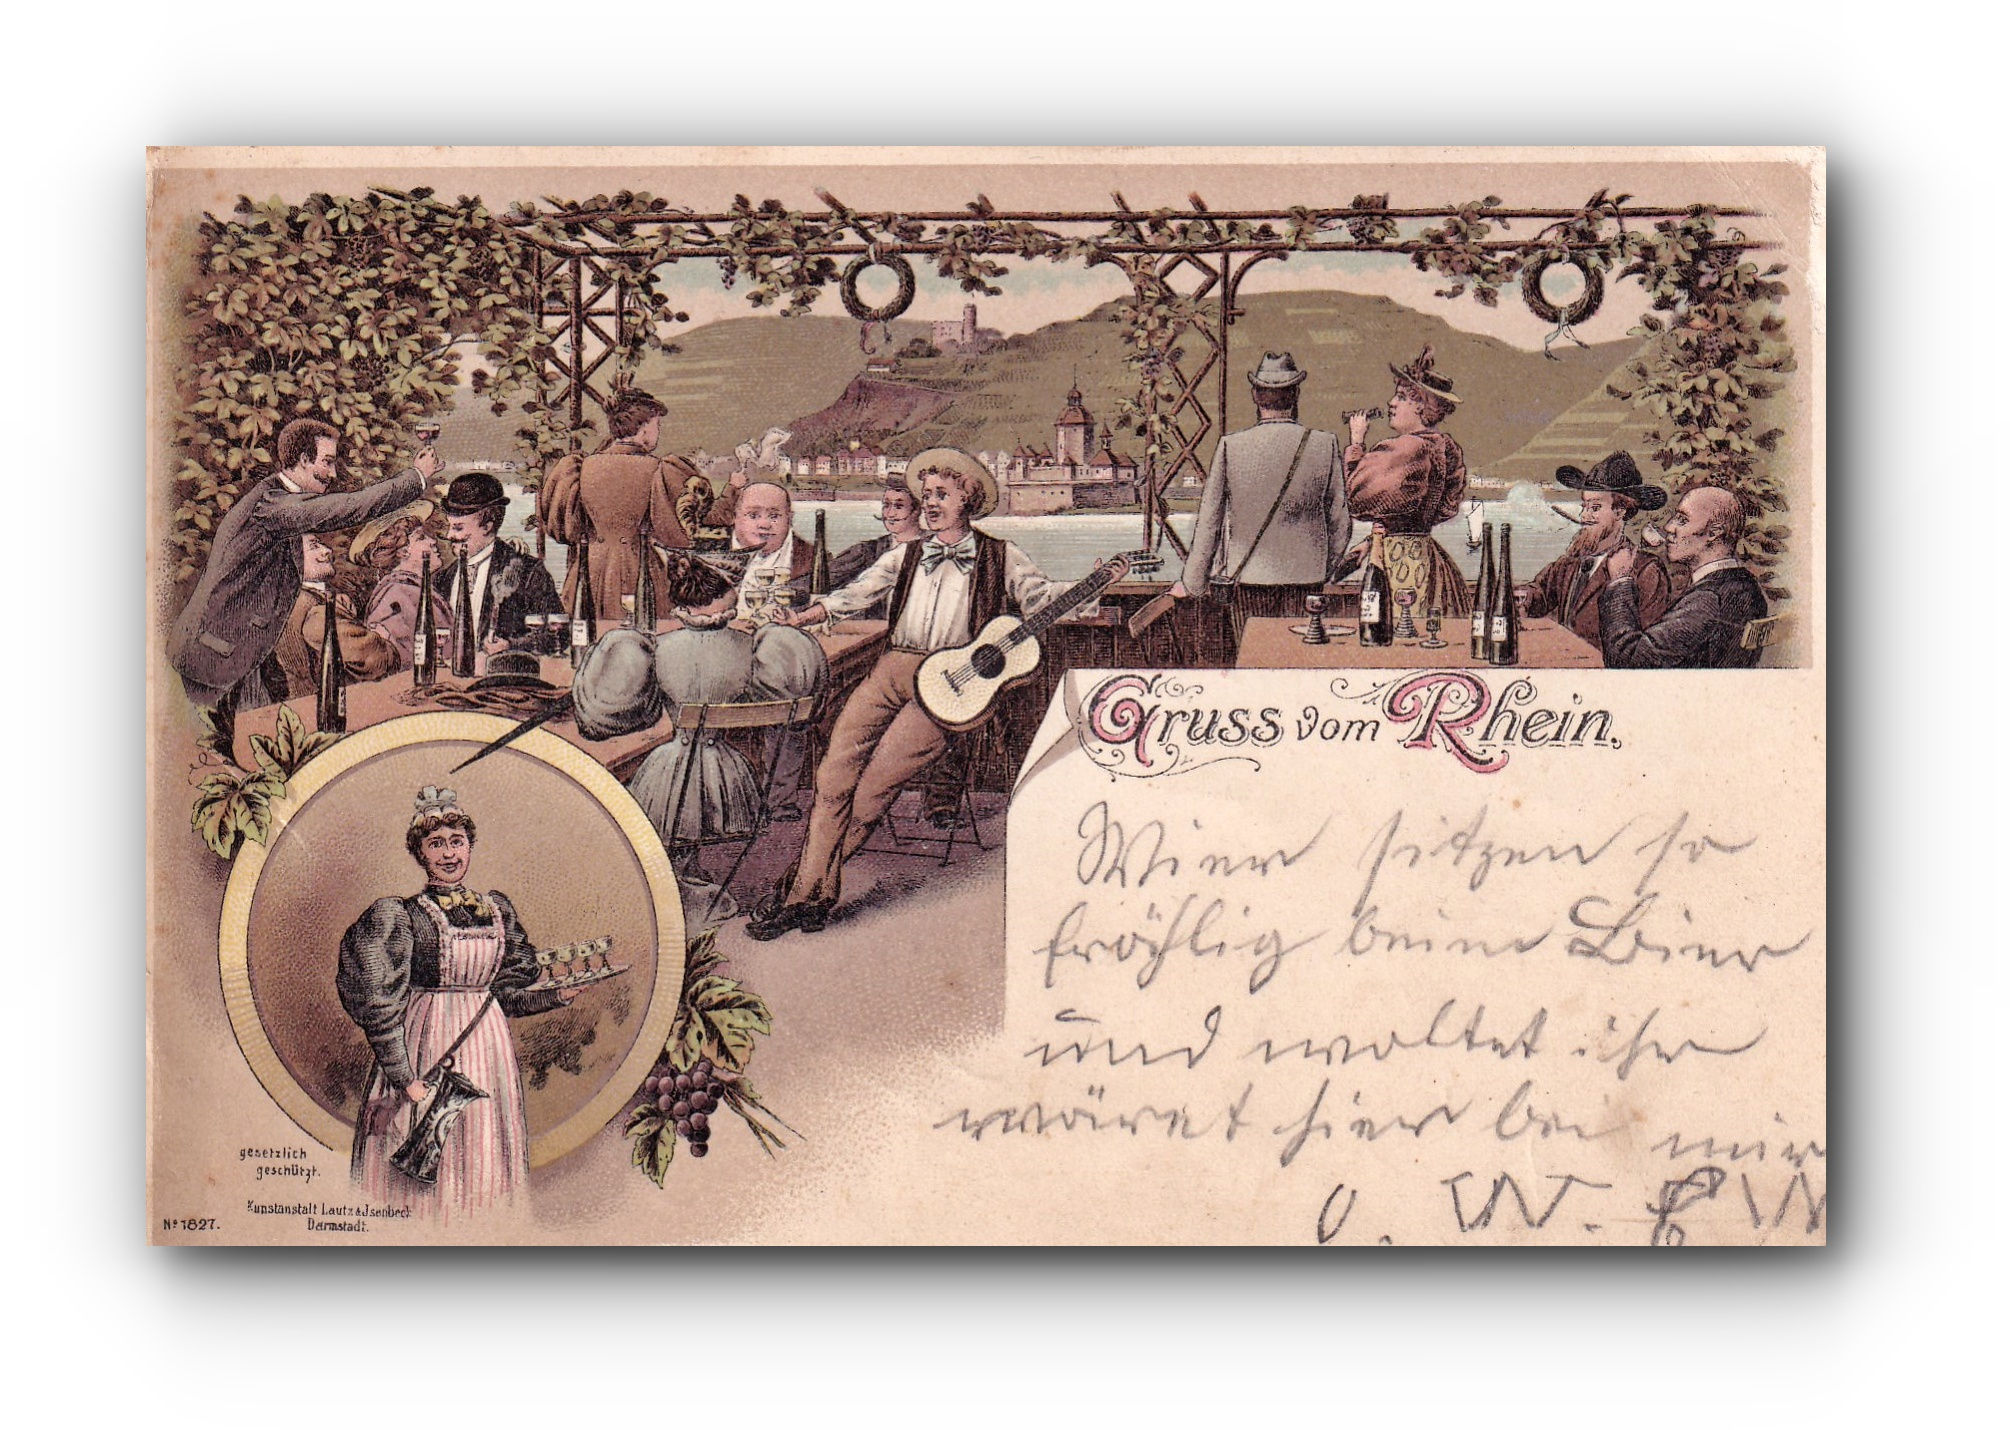 Gruss vom Rhein.
Wier sitzen so
fröhlig beim Bier
und woltet ihr
wäret hier bei mir
gesetzlich
geschützt.
Kunstanstalt Lautz & Jsenbeck
Darmstadt.
No 1827.